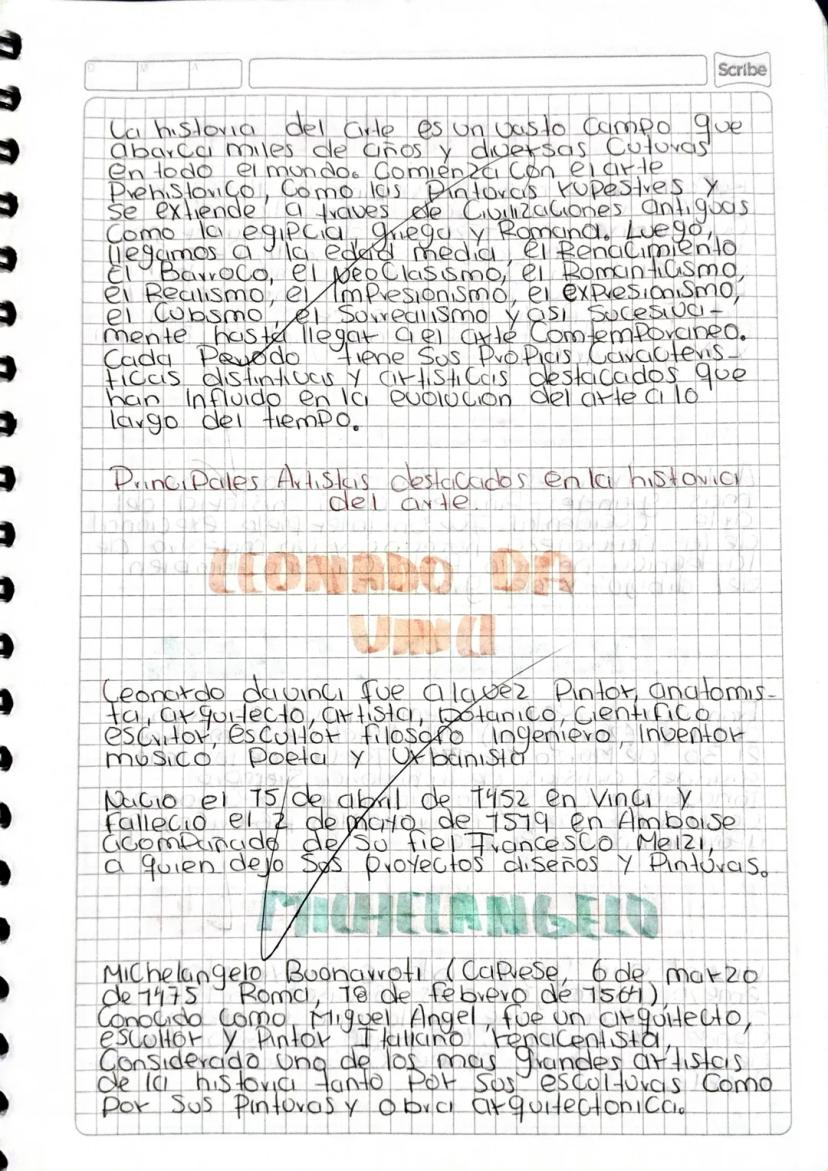 D M A
Scribe
La historia del arte es un vasto campo que
abarca miles de años y diversas Cuturas
en todo el mundo. Comienza con el arte
Prehistorico, Como las Pintoras rupestres y
Se extiende a traves de Civilizaciones antiguas
Como la egipcia griega y Romana. Luego,
llegamos a la edad media, el Renacimiento
El Barroco, el NeoClasismo, el Romanticismo,
el Realismo, el Impresionismo, el expresionismo,
el Cubsmo, el Surrealismo y asi Sucesiva-
mente hasta llegar a el arte Comtemporaneo.
Cada Periodo tiene Sus Propias Caracteris-
ticas distintivas y artisticas destacados que
han Influido en la evolucion del arte a lo
largo del tiempo.
Principales Artistas destacados en la historia
del arte.
LEONADO DA
VINCI
Leonardo davinci fue a la vez Pintor, anatomis-
ta, arquitecto, artista, botanico, Cientifico
escritor, escultor filosofo Ingeniero, Inventor
musico Poeta y Urbanista
Nacio el 15 de abril de 1452 en Vinci y
fallecio el 2 de mayo de 1519 en Amboise
acompañado de Su fiel Francesco Melzi,
a quien dejo Sus proyectos diseños y Pinturas.
MICHELANGELO
Michelangelo Buonarroti (Caprese, 6 de marzo
de 1475 Roma, 18 de febrero de 1564),
Conocido como Miguel Angel, fue un arquitecto,
escultor y Pintor Italiano renacentista,
Considerado uno de los mas grandes artistas
de la historia tanto Por Sus esculturas Como
Por Sus Pinturas y obra arquitectonica.